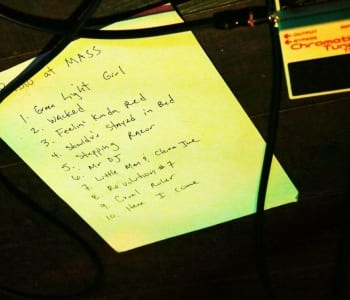 at MASS
1. Green Light Girl
2. WAcked
3. Feelin' Kinda Red
4. Shoulda Stayed in Bed
5. Stepping RAzor
6. Mr DJ
7. Little Man & China Joe
8. Revolution #7
9. Cruel Ruler
10. Here I Come
OUTPUT
BYPASS
Chromatic
Tune